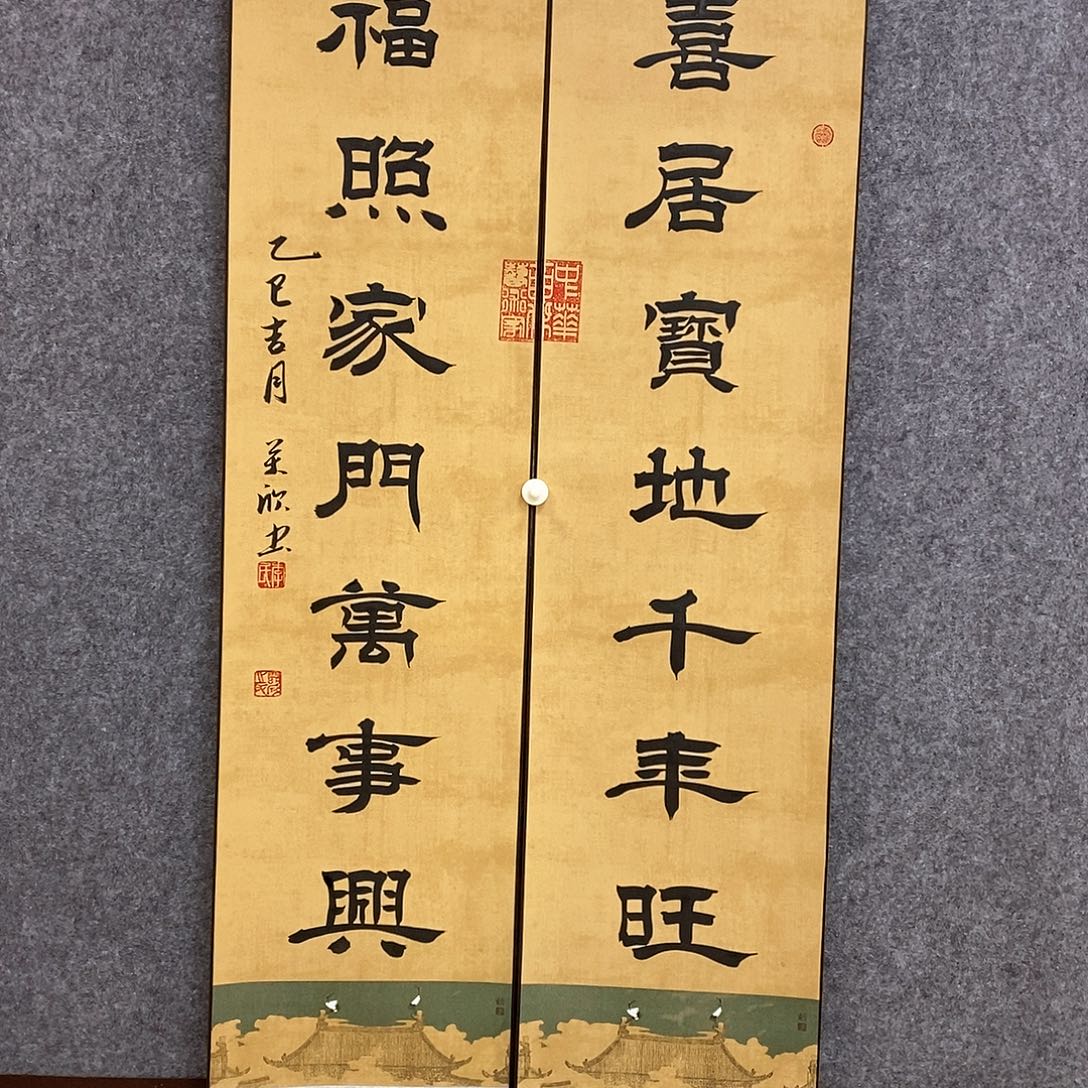 喜居寶地千年旺
福照家門萬事興
乙巳吉月